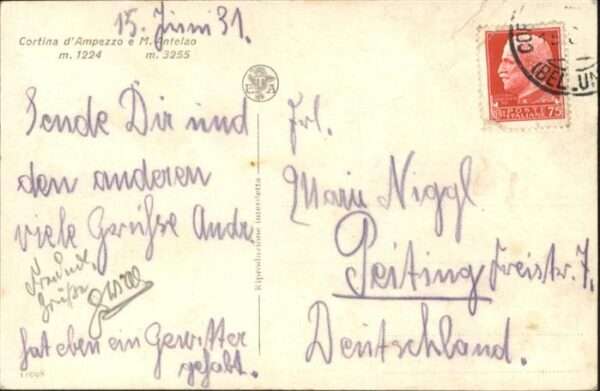 15. Juni 31.
Cortina d'Ampezzo e M. Antelao
m. 1224 m. 3255
Sende Dir und
den anderen
viele Grüsse Andr.
Freundl.
Grüße
hat eben ein Gewitter
gehabt.
Riproduzione interdetta
Frl.
Marie Niggl
Peiting Freistr. 7.
Deutschland.
POSTE
ITALIANE
75
COR
(BELLUN